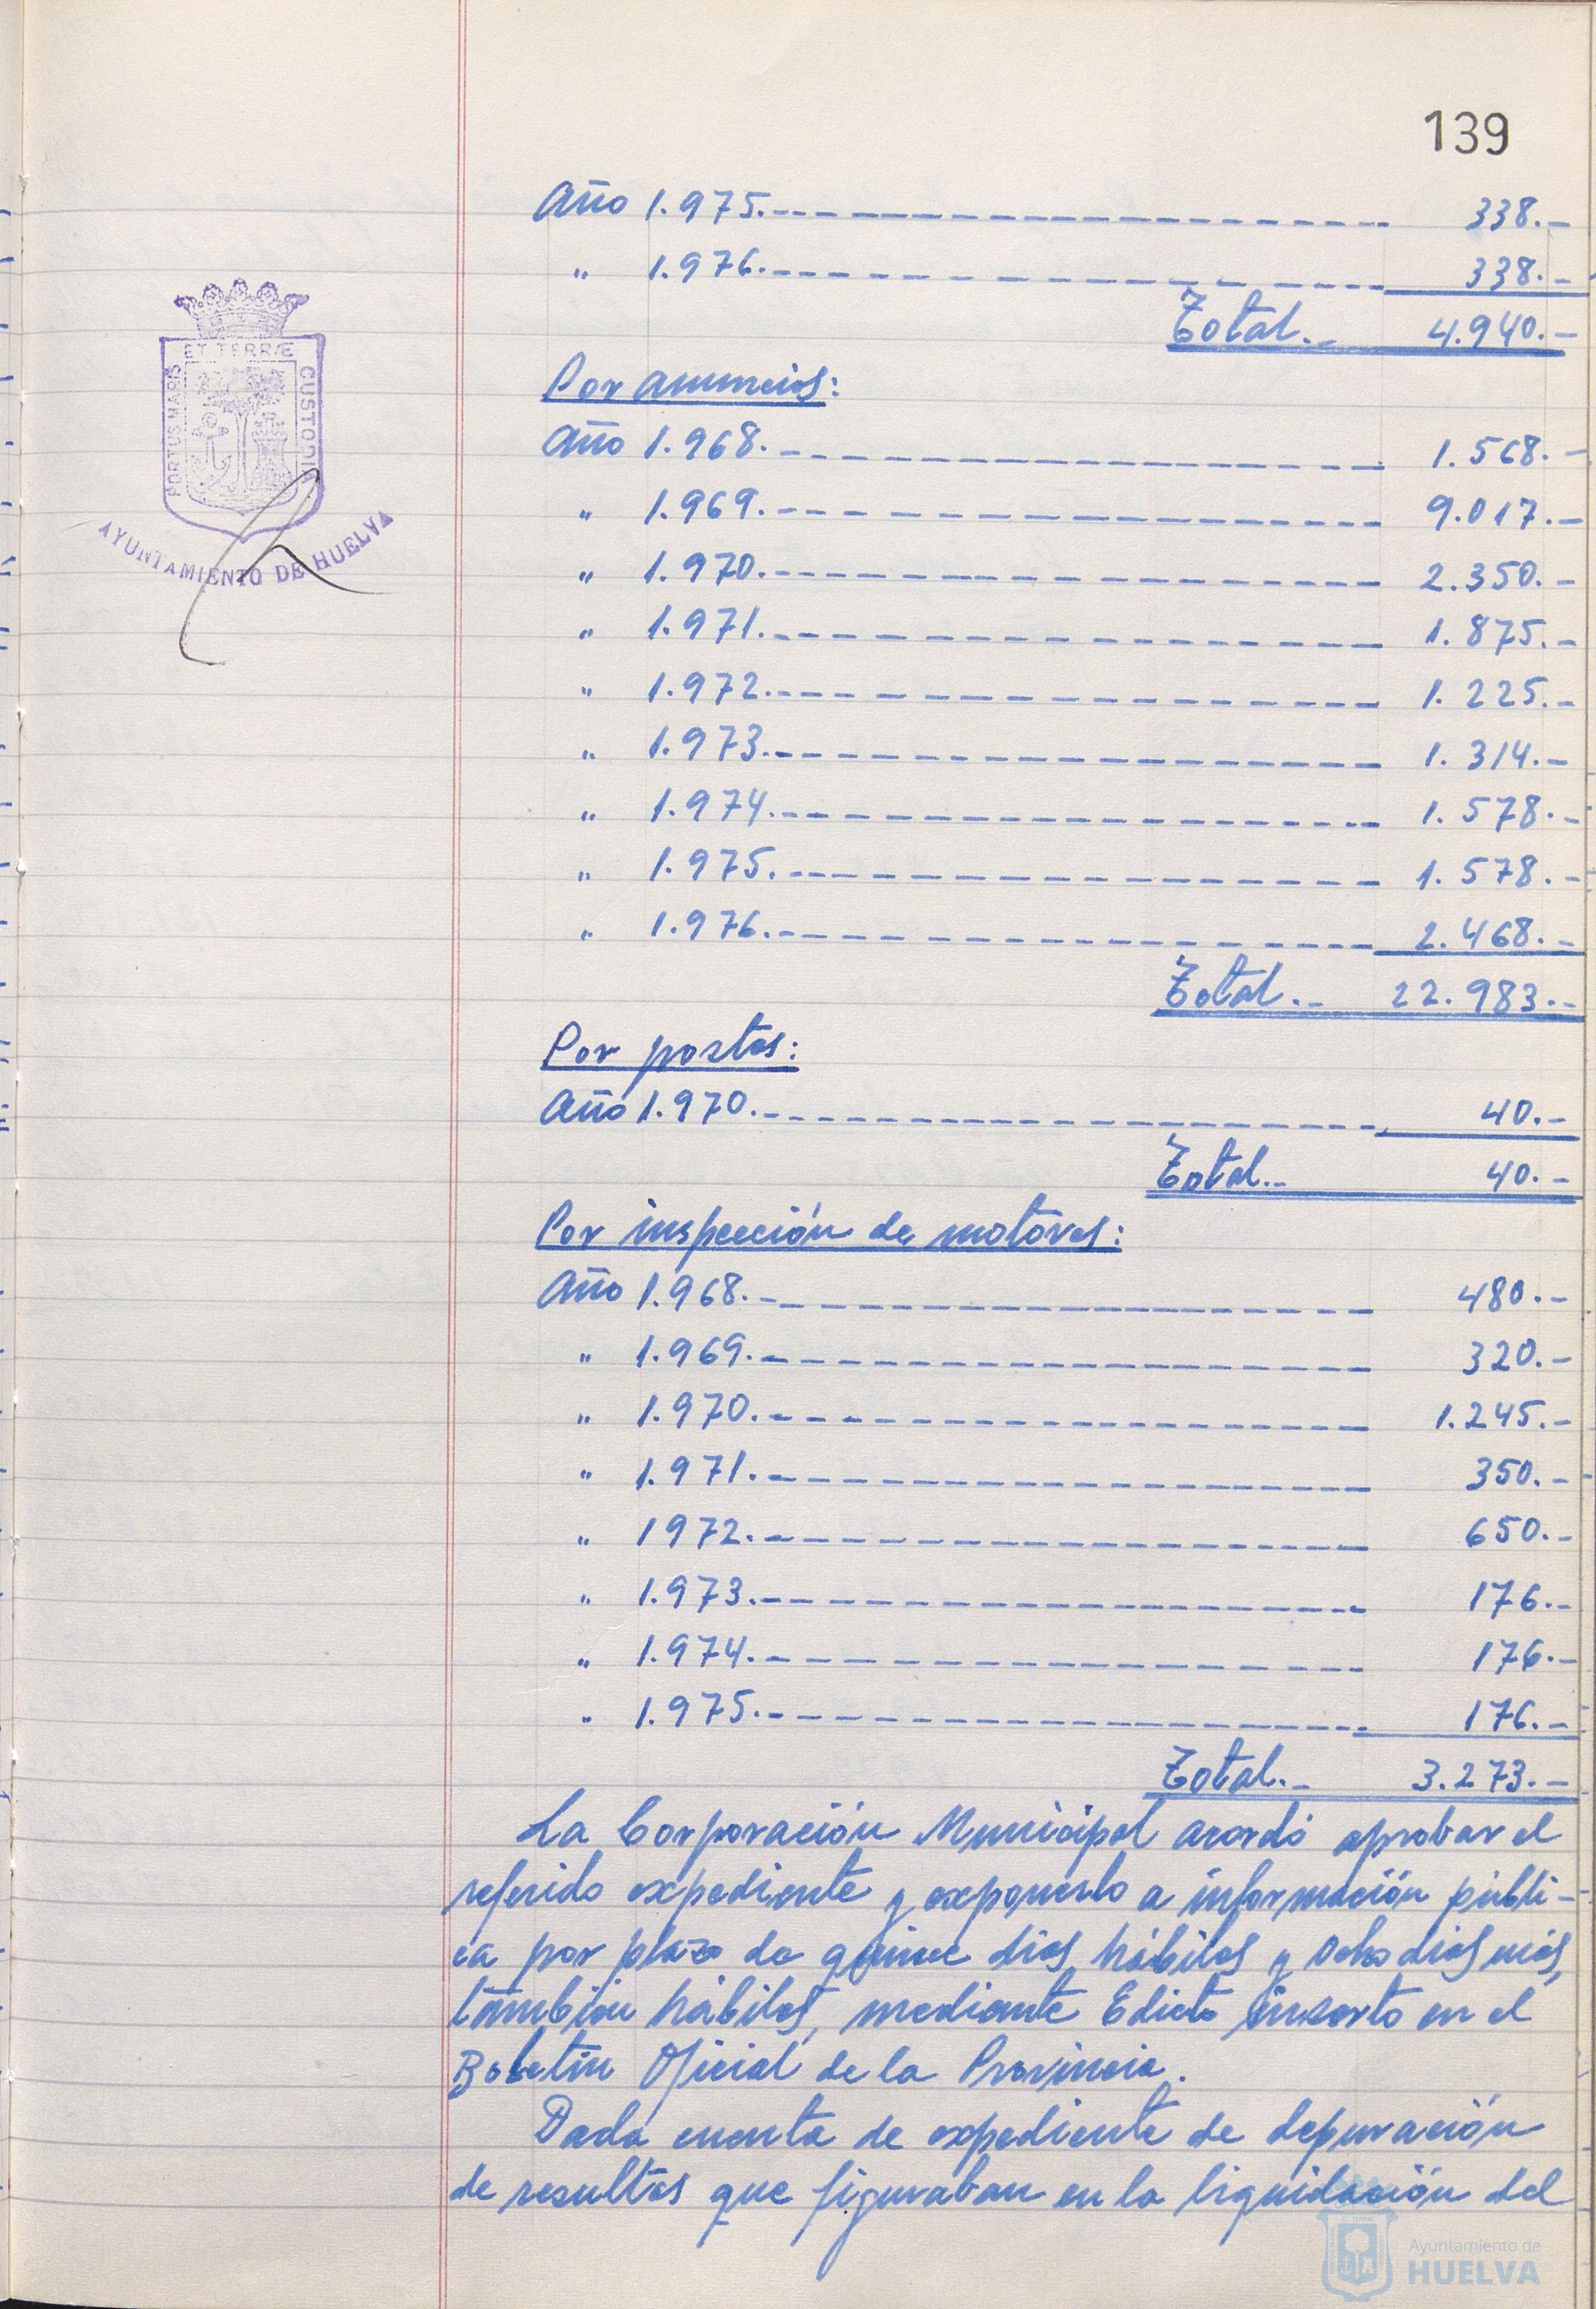 139
Año 1.975.--- 338.-
" 1.976.--- 338.-
Total.- 4.940.-
Por anuncios:
Año 1.968.--- 1.568.-
" 1.969.--- 9.017.-
" 1.970.--- 2.350.-
" 1.971.--- 1.875.-
" 1.972.--- 1.225.-
" 1.973.--- 1.314.-
" 1.974.--- 1.578.-
" 1.975.--- 1.578.-
" 1.976.--- 2.468.-
Total.- 22.983.-
Por postes:
Año 1.970.--- 40.-
Total.- 40.-
Por inspección de motores:
Año 1.968.--- 480.-
" 1.969.--- 320.-
" 1.970.--- 1.245.-
" 1.971.--- 350.-
" 1972.--- 650.-
" 1.973.--- 176.-
" 1.974.--- 176.-
" 1.975.--- 176.-
Total.- 3.273.-
La Corporación Municipal acordó aprobar el
referido expediente y exponerlo a información públi-
ca por plazo de quince dias hábiles y ocho dias más,
tambien hábiles, mediante Edicto inserto en el
Boletin Oficial de la Provincia.
Dada cuenta de expediente de depuración
de resultas que figuraban en la liquidación del
PORTUS MARIS
ET TERRÆ
CUSTODIA
AYUNTAMIENTO DE HUELVA
Ayuntamiento de
HUELVA